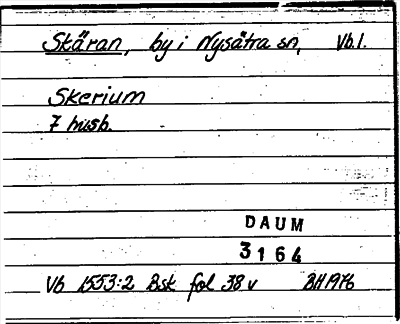 Skäran, by i Nysätra sn, Vb.l.
Skerium
7 husb.
DAUM
3164
Vb 1553:2 Bsk fol 38 v BH 1976